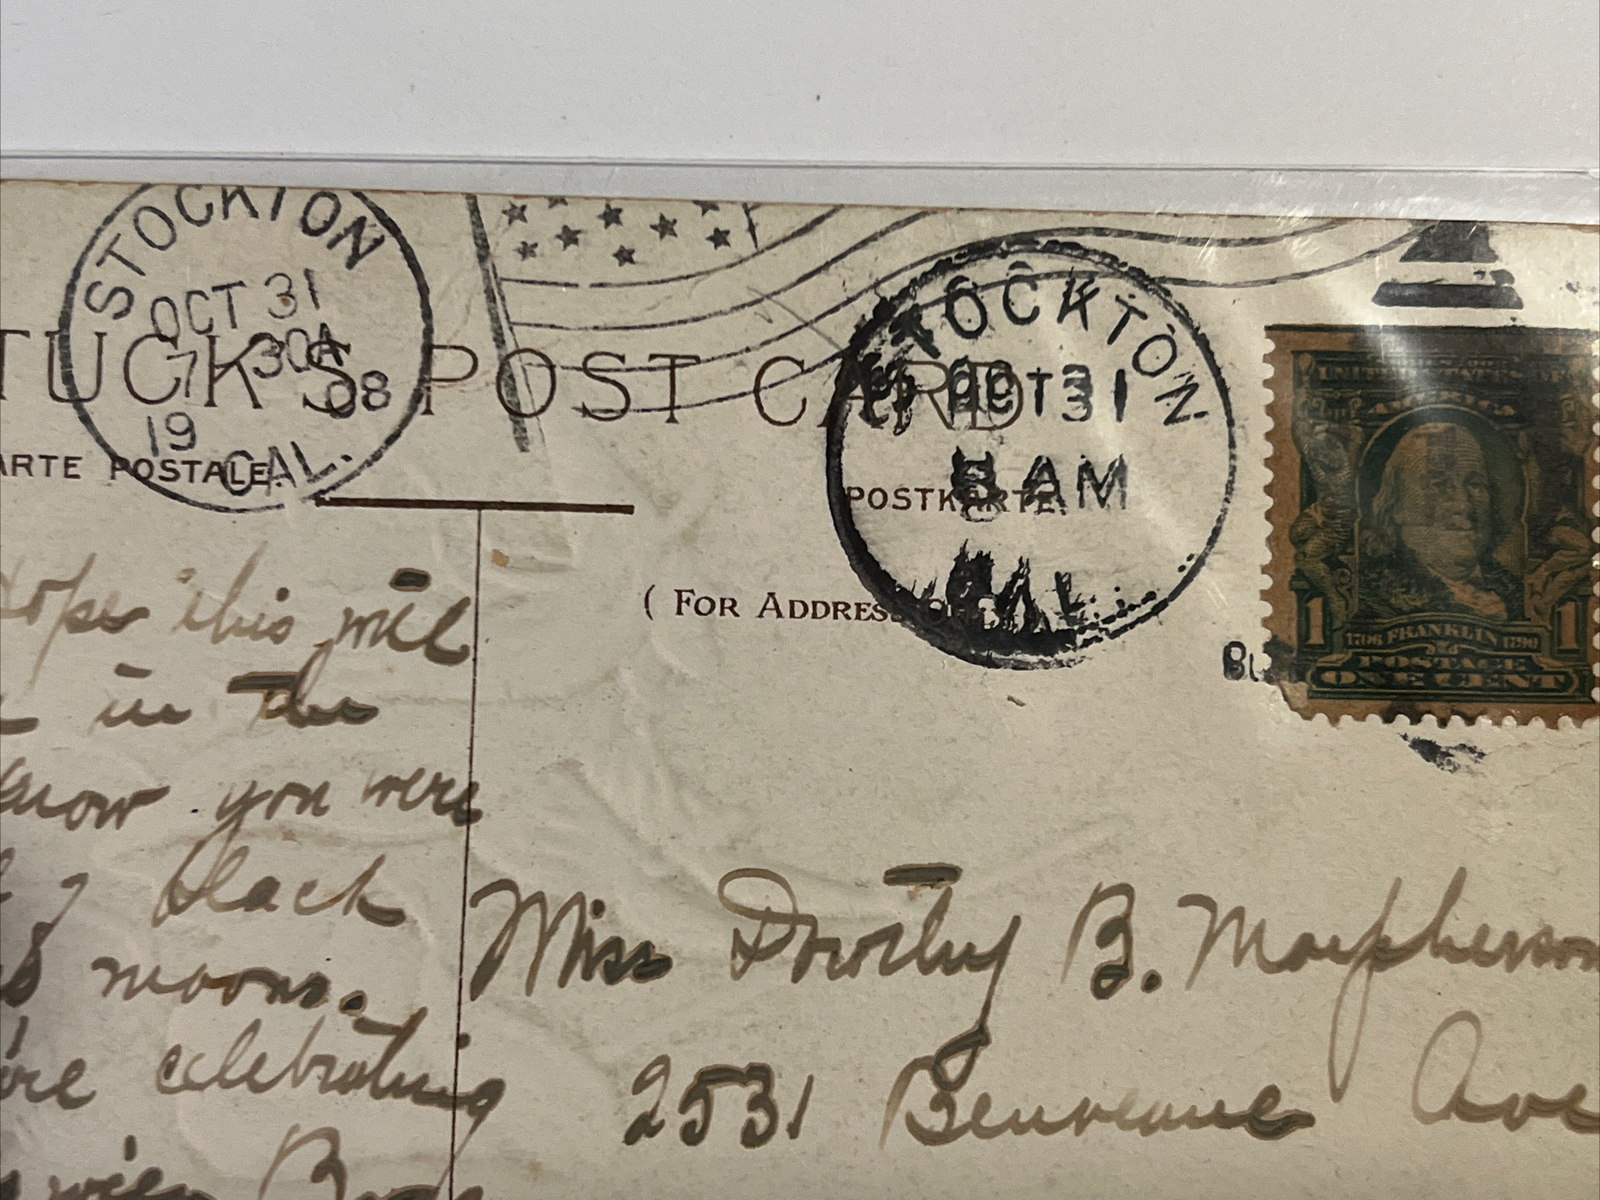 STOCKTON
OCT 31
7 30A
19 08
CAL.
STOCKTON
OCT 31
8 AM
CAL.
TUCK'S POST CARD
ARTE POSTALE
POSTKARTE
( FOR ADDRESS
UNITED STATES OF
AMERICA
1 1706 FRANKLIN 1790 1
POSTAGE
ONE CENT
Hope this will
in the
know you were
black
moons.
celebrating
Miss Dorothy B. Morpherson
2531 Benvenue Ave